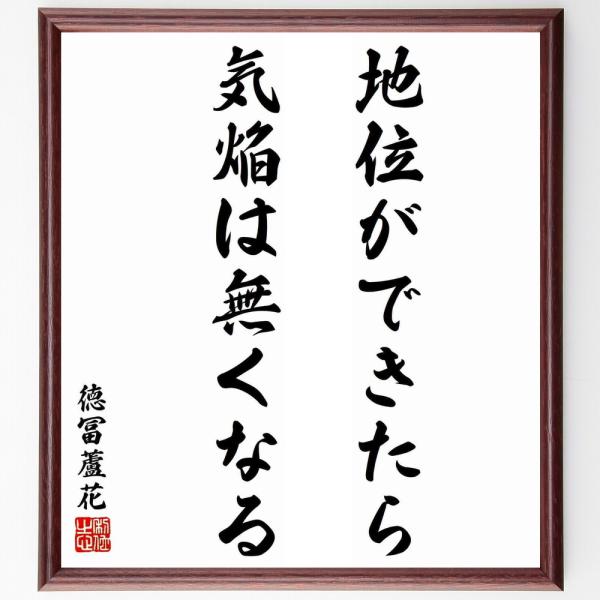 地位ができたら
気焔は無くなる
徳冨蘆花